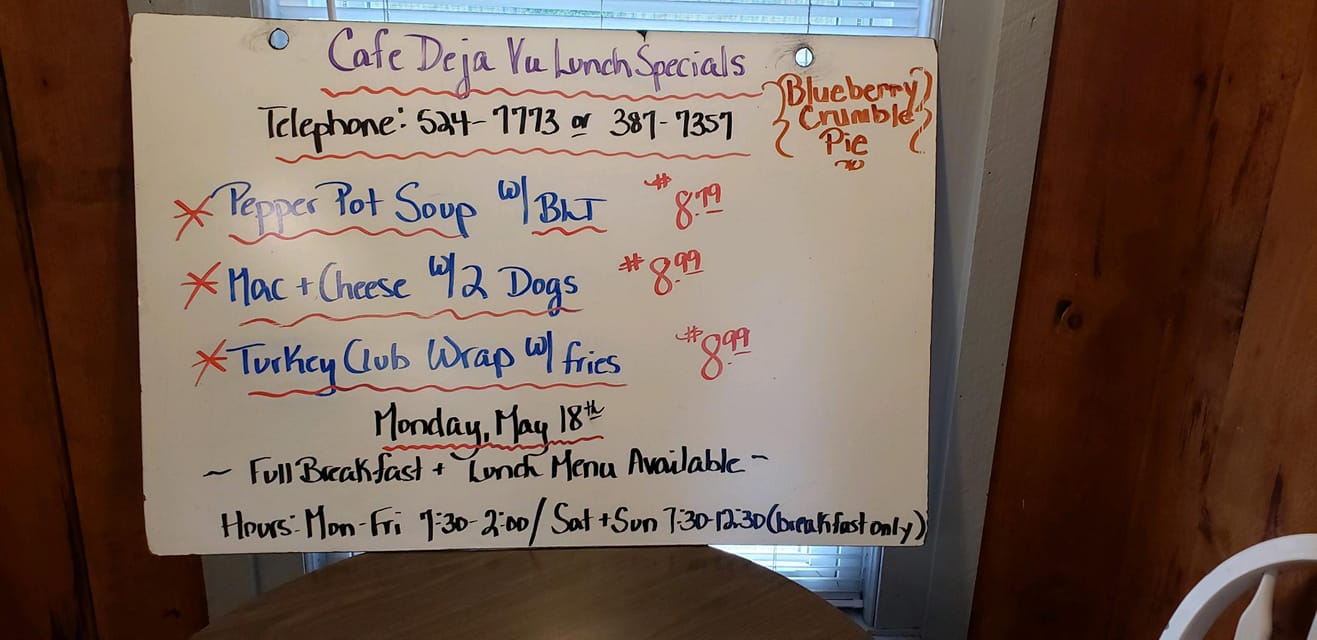 Cafe Deja Vu Lunch Specials
Telephone: 524-7773 or 387-7357
Blueberry
Crumble
Pie
Pepper Pot Soup w/ BLT $8.79
Mac + Cheese w/ 2 Dogs $8.99
Turkey Club Wrap w/ fries $8.99
Monday, May 18th
~ Full Breakfast + Lunch Menu Available ~
Hours: Mon-Fri 7:30-2:00 / Sat + Sun 7:30-12:30 (breakfast only)